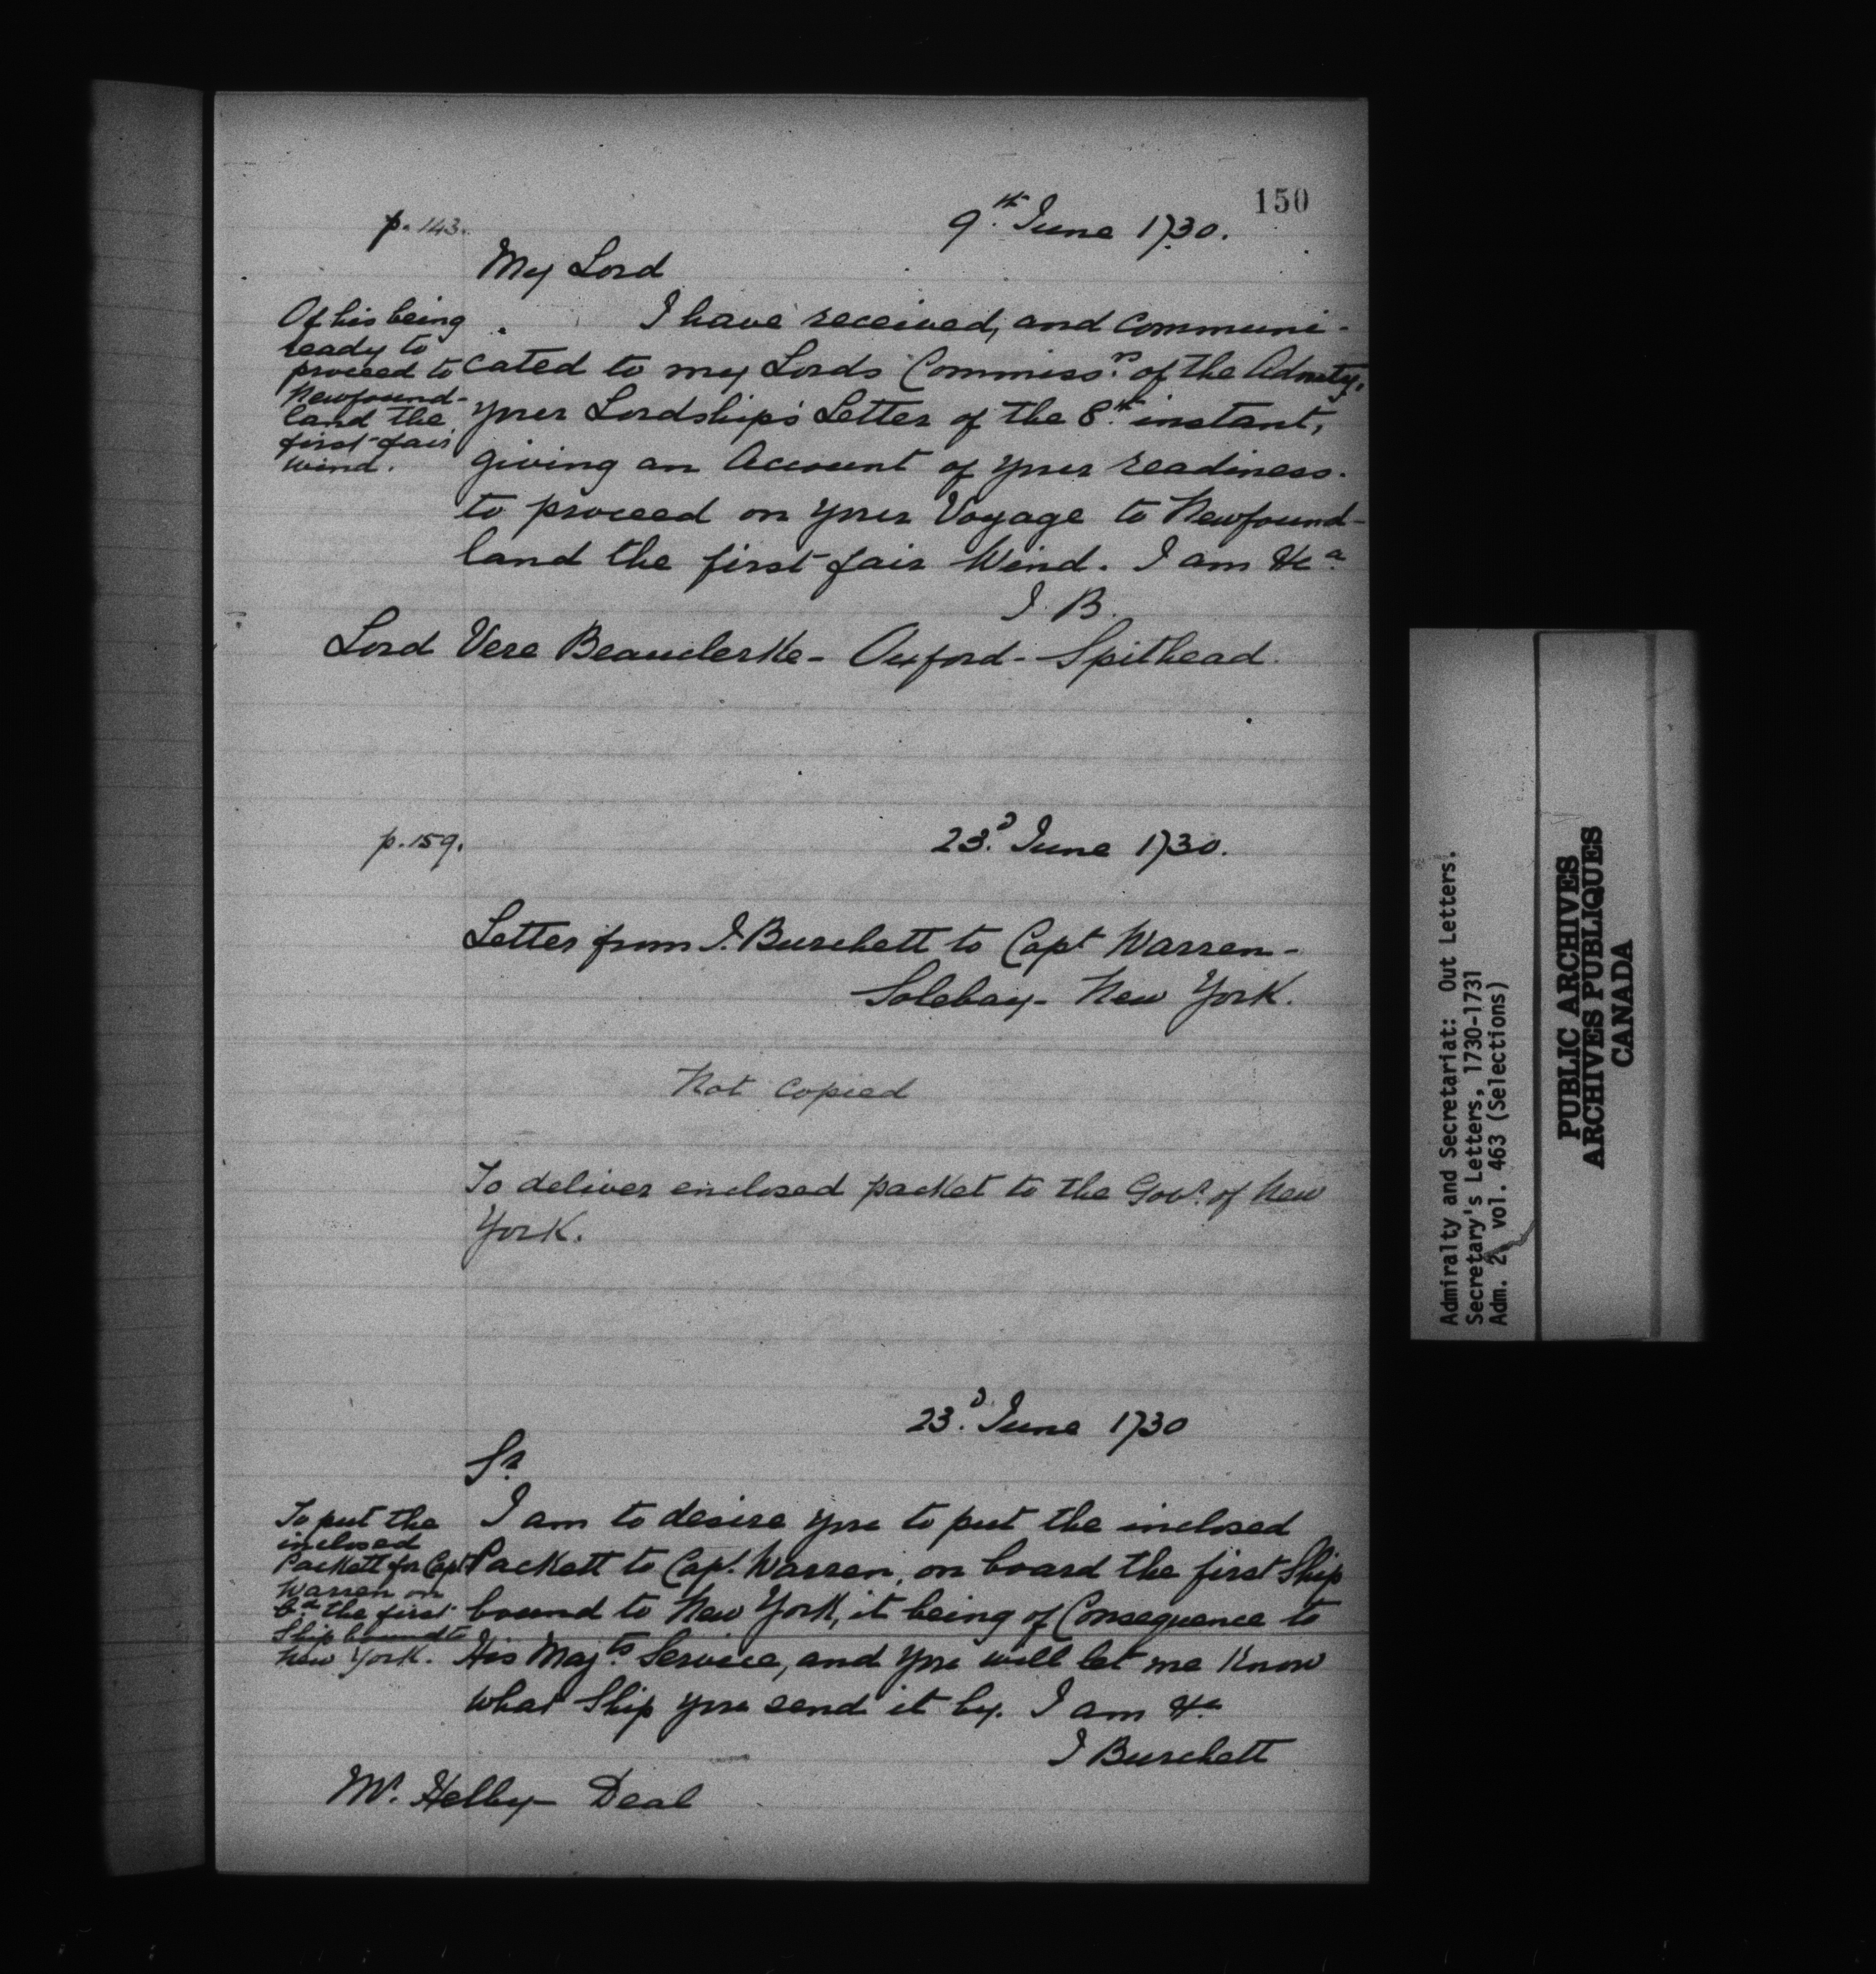 150
p. 143.
9th June 1730.
My Lord
Of his being
ready to
proceed to
Newfound-
land the
first fair
wind.
I have received, and communi-
cated to my Lords Commissrs of the Admty,
your Lordship's Letter of the 8th instant,
giving an Account of your readiness
to proceed on your Voyage to Newfound-
land the first fair Wind. I am &ca
J. B.
Lord Vere Beauclerke - Oxford - Spithead.
p. 159.
23d June 1730.
Letter from J. Burchett to Capt Warren -
Solebay - New York.
Not Copied
To deliver enclosed packet to the Govr of New
York.
23d June 1730
Sr
To put the
inclosed
Packett for Capt
Warren on
bd the first
Ship bound to
New York.
I am to desire you to put the inclosed
Packett to Capt. Warren, on board the first Ship
bound to New York, it being of Consequence to
His Majts Service, and you will let me Know
what Ship you send it by. I am &c
J Burchett
Mr. Helby - Deal
Admiralty and Secretariat: Out Letters.
Secretary's Letters, 1730-1731
Adm. 2, vol. 463 (Selections)
PUBLIC ARCHIVES
ARCHIVES PUBLIQUES
CANADA